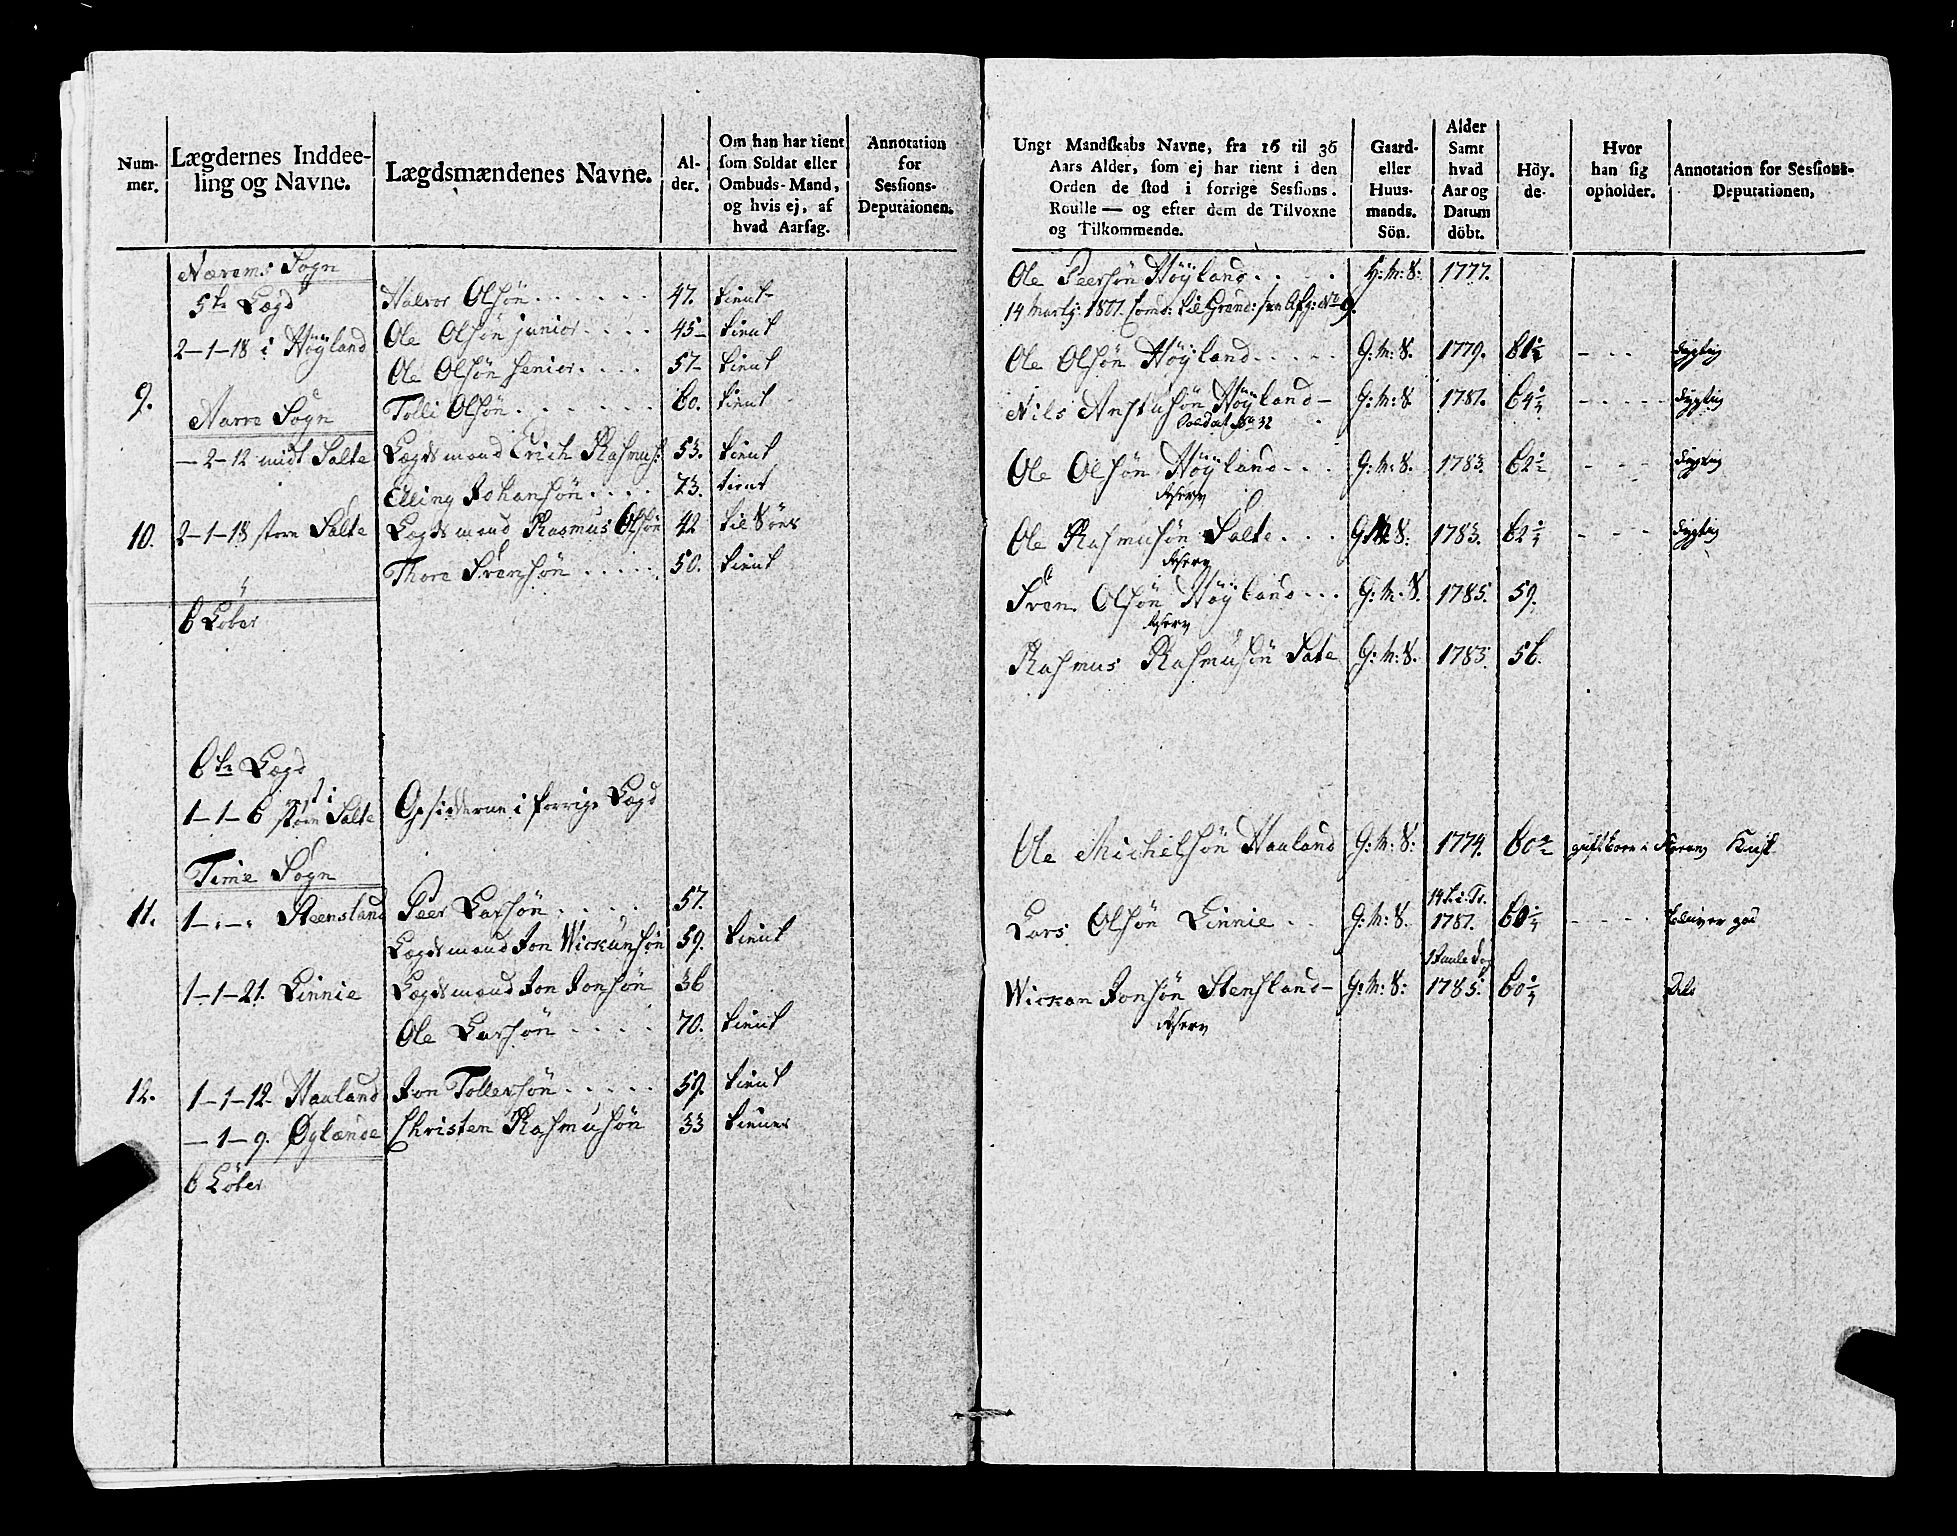 Num-
mer.
Lægdernes Inddee-
ling og Navne.
Lægdsmændenes Navne.
Al-
der.
Om han har tient
som Soldat eller
Ombuds-Mand,
og hvis ej, af
hvad Aarsag.
Annotation
for
Sessions-
Deputaionen.
Nærems Sogn
5te Lægd
Halvor Olsøn 47. tient
2-1-18 i Höÿland
Ole Olsön junior 45 tient
Ole Olsön senior 57 tient
9.
Narre Sogn
Tolli Olsön 60. tient
-2-12 midt Salte Lægdsmand Erich Rasmus: 53. tient
Elling Johansön 73. tient
10. 2-1-18 store Salte Lægdsmand Rasmus Olsön 42 til Söes
Thore Svensön 50. tient
6 Löber
6te Lægd
1-1-6 store Salte Opsidderne i forrige Lægd
Time Sogn
11. 1-"-" Steensland Peer Larsön 57.
Lægdsmand Jon Wickunsön 59. tient
1-1-21. Linnie Lægdsmand Jon Jonsön 36
Ole Larsön 70. tient
12. 1-1-12 Hauland Jon Tollersön 59. tient
-1-9. Øglænde Christen Rasmusön 33 tiener
6 Löber
Ungt Mandskabs Navne, fra 16 til 36
Aars Alder, som ej har tient i den
Orden de stod i forrige Sessions.
Roulle — og efter dem de Tilvoxne
og Tilkommende.
Gaard-
eller
Huus-
mands.
Sön.
Alder
Samt
hvad
Aar og
Datum
döbt.
Höy.
de.
Hvor
han sig
opholder.
Annotation for Sessions-
Deputationen,
Ole Peersön Höÿland H: M: S: 1777.
14 Martj: 1801.
Ole Olsön Höÿland G: M: S. 1779. 61½ dygtig
Nils Höÿland G: M: S 1781. 64¼ dygtig
Soldat No 32
Ole Olsön Höÿland G: M: S. 1783. 62½ dygtig
Reserv
Ole Rasmusön Salte G: M: S: 1783. 62¼ dygtig
Reserv
Sven Olsön Höÿland G: M: S. 1785. 59.
Reserv
Rasmus Rasmusön Salte G: M: S. 1783. 56.
Ole Michelsön Hauland G: M: S: 1774. 60½
Lars Olsön Linnie G: M: S. 1781. 60¼
Wickan Jonsön Stensland G: M: S: 1785. 60¼
Reserv